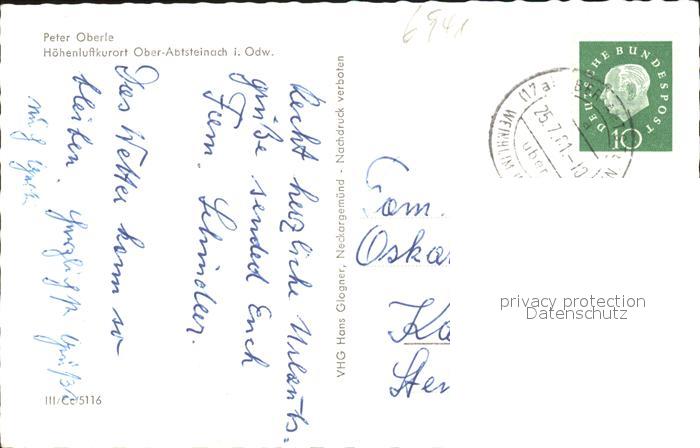 6941
Peter Oberle
Höhenluftkurort Ober-Abtsteinach i. Odw.
Recht herzliche Urlaubs-
grüße sended Euch
Fam. Schindler.
Das Wetter kann so
bleiben. Herzliche Grüße
VHG Hans Glogner, Neckargemünd - Nachdruck verboten
III/Ce 5116
DEUTSCHE BUNDESPOST
10
(17a)
25.7.61-10
über
WEINHEIM
Fam.
Oskar
Ka
Ster
privacy protection
Datenschutz